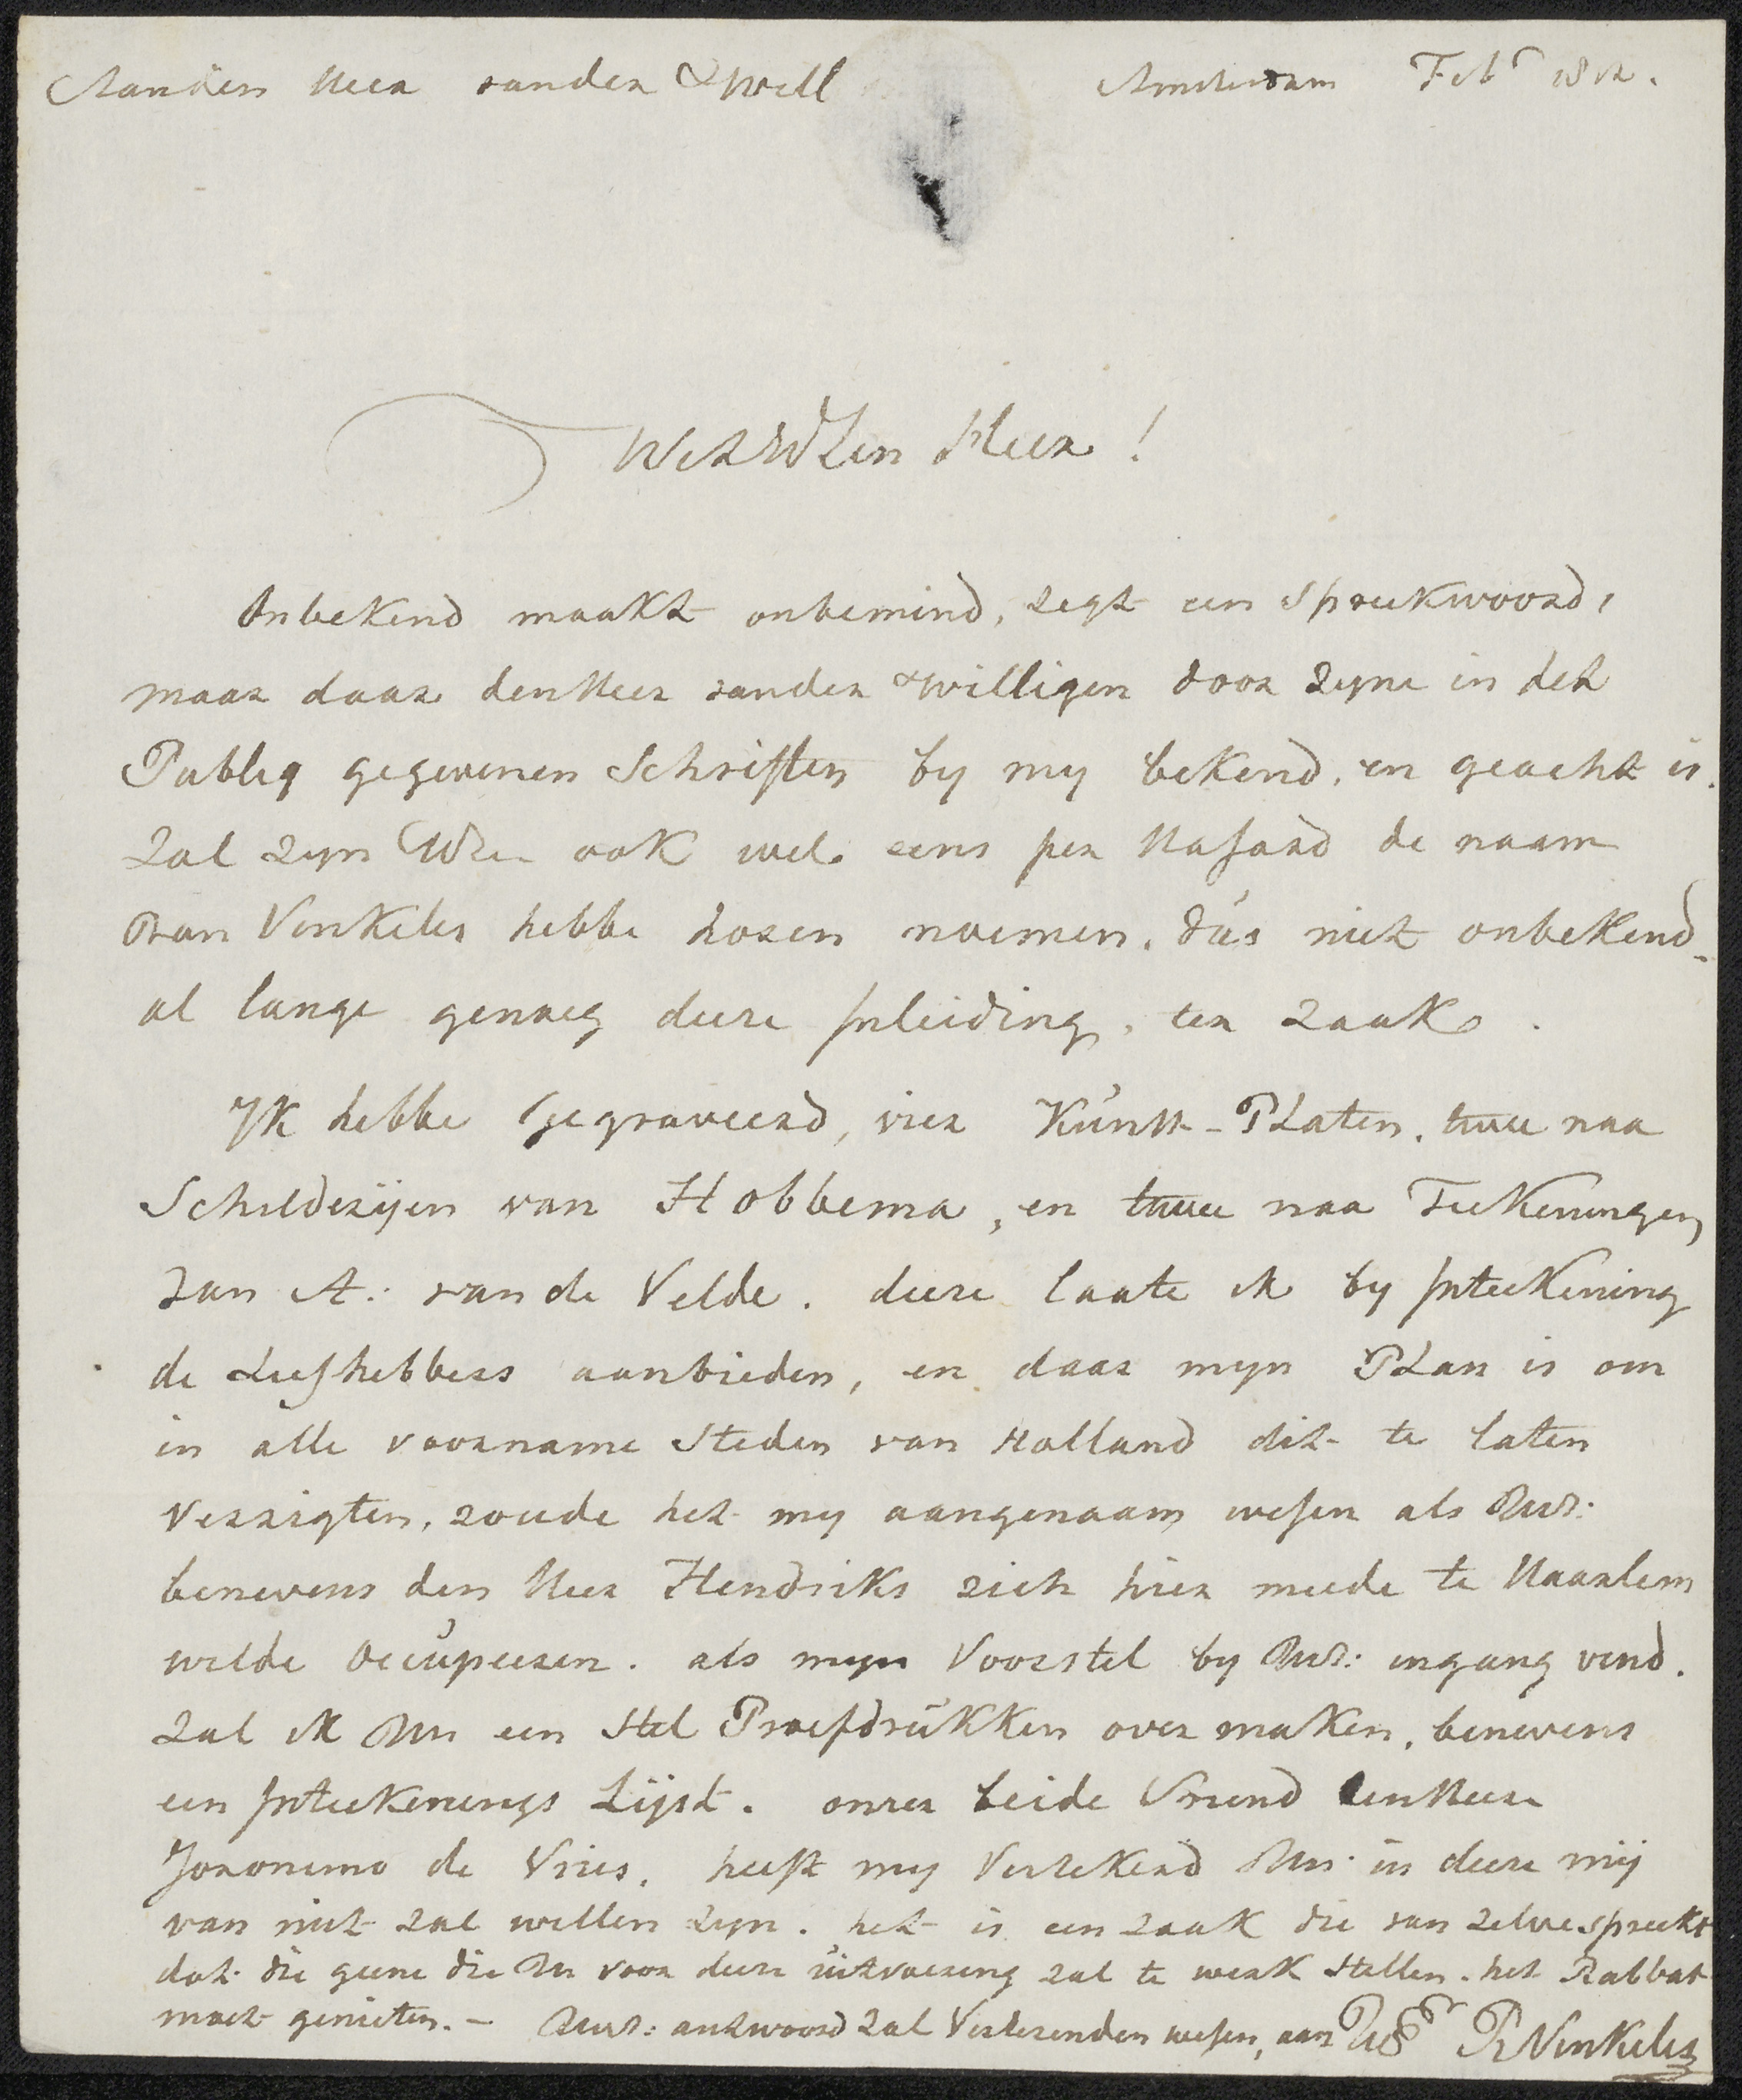 Aanden Heer vander Will
Amsterdam Feb^r 1812.
WelEdLen Heer!
Onbekend maakt onbemind, zegt een spreekwoord,
maar daar denHeer vander Willigen door zyne in het
Publiq gegevenen Schriften by my bekend, en geacht is.
Zal zyn WEd ook wel eens per Hasard de naam
van Vinkeles hebbe horen noemen, dús niet onbekend
al lange genoeg deeze Inleiding, ter zaak.
IK hebbe Gegraveerd, vier Kúnst-PLaten, twee naa
Schilderÿen van Hobbema, en twee naa Teekeningen
van A: van de Velde. deeze laate ik by Inteekening
de Liefhebbers aanbieden, en daar myn PLan is om
in alle voorname Steden van Holland dit te laten
Verrigten, zoude het my aangenaam wesen als UwE:
benevens den Heer Hendriks zich hier meede te Haarlem
wilde Occúpeeren. als myn Voorstel by UwE: ingang vind.
Zal ik UE een Stel Proefdrúkken over maken, benevens
een Inteekenings Lÿst. onzer beide Vriend denHeer
Joronimo de Vries, heeft my Verzekerd UE in deeze mÿ
van nut zal willen zyn. het is een zaak die van zelve spreekt
dat die geene die UE voor deeze úitvoering zal te werk Stellen, het Rabbat
moet genieten. - UwE: antwoord zal Verleerenden wesen, aan UEd^r R Vinkeles